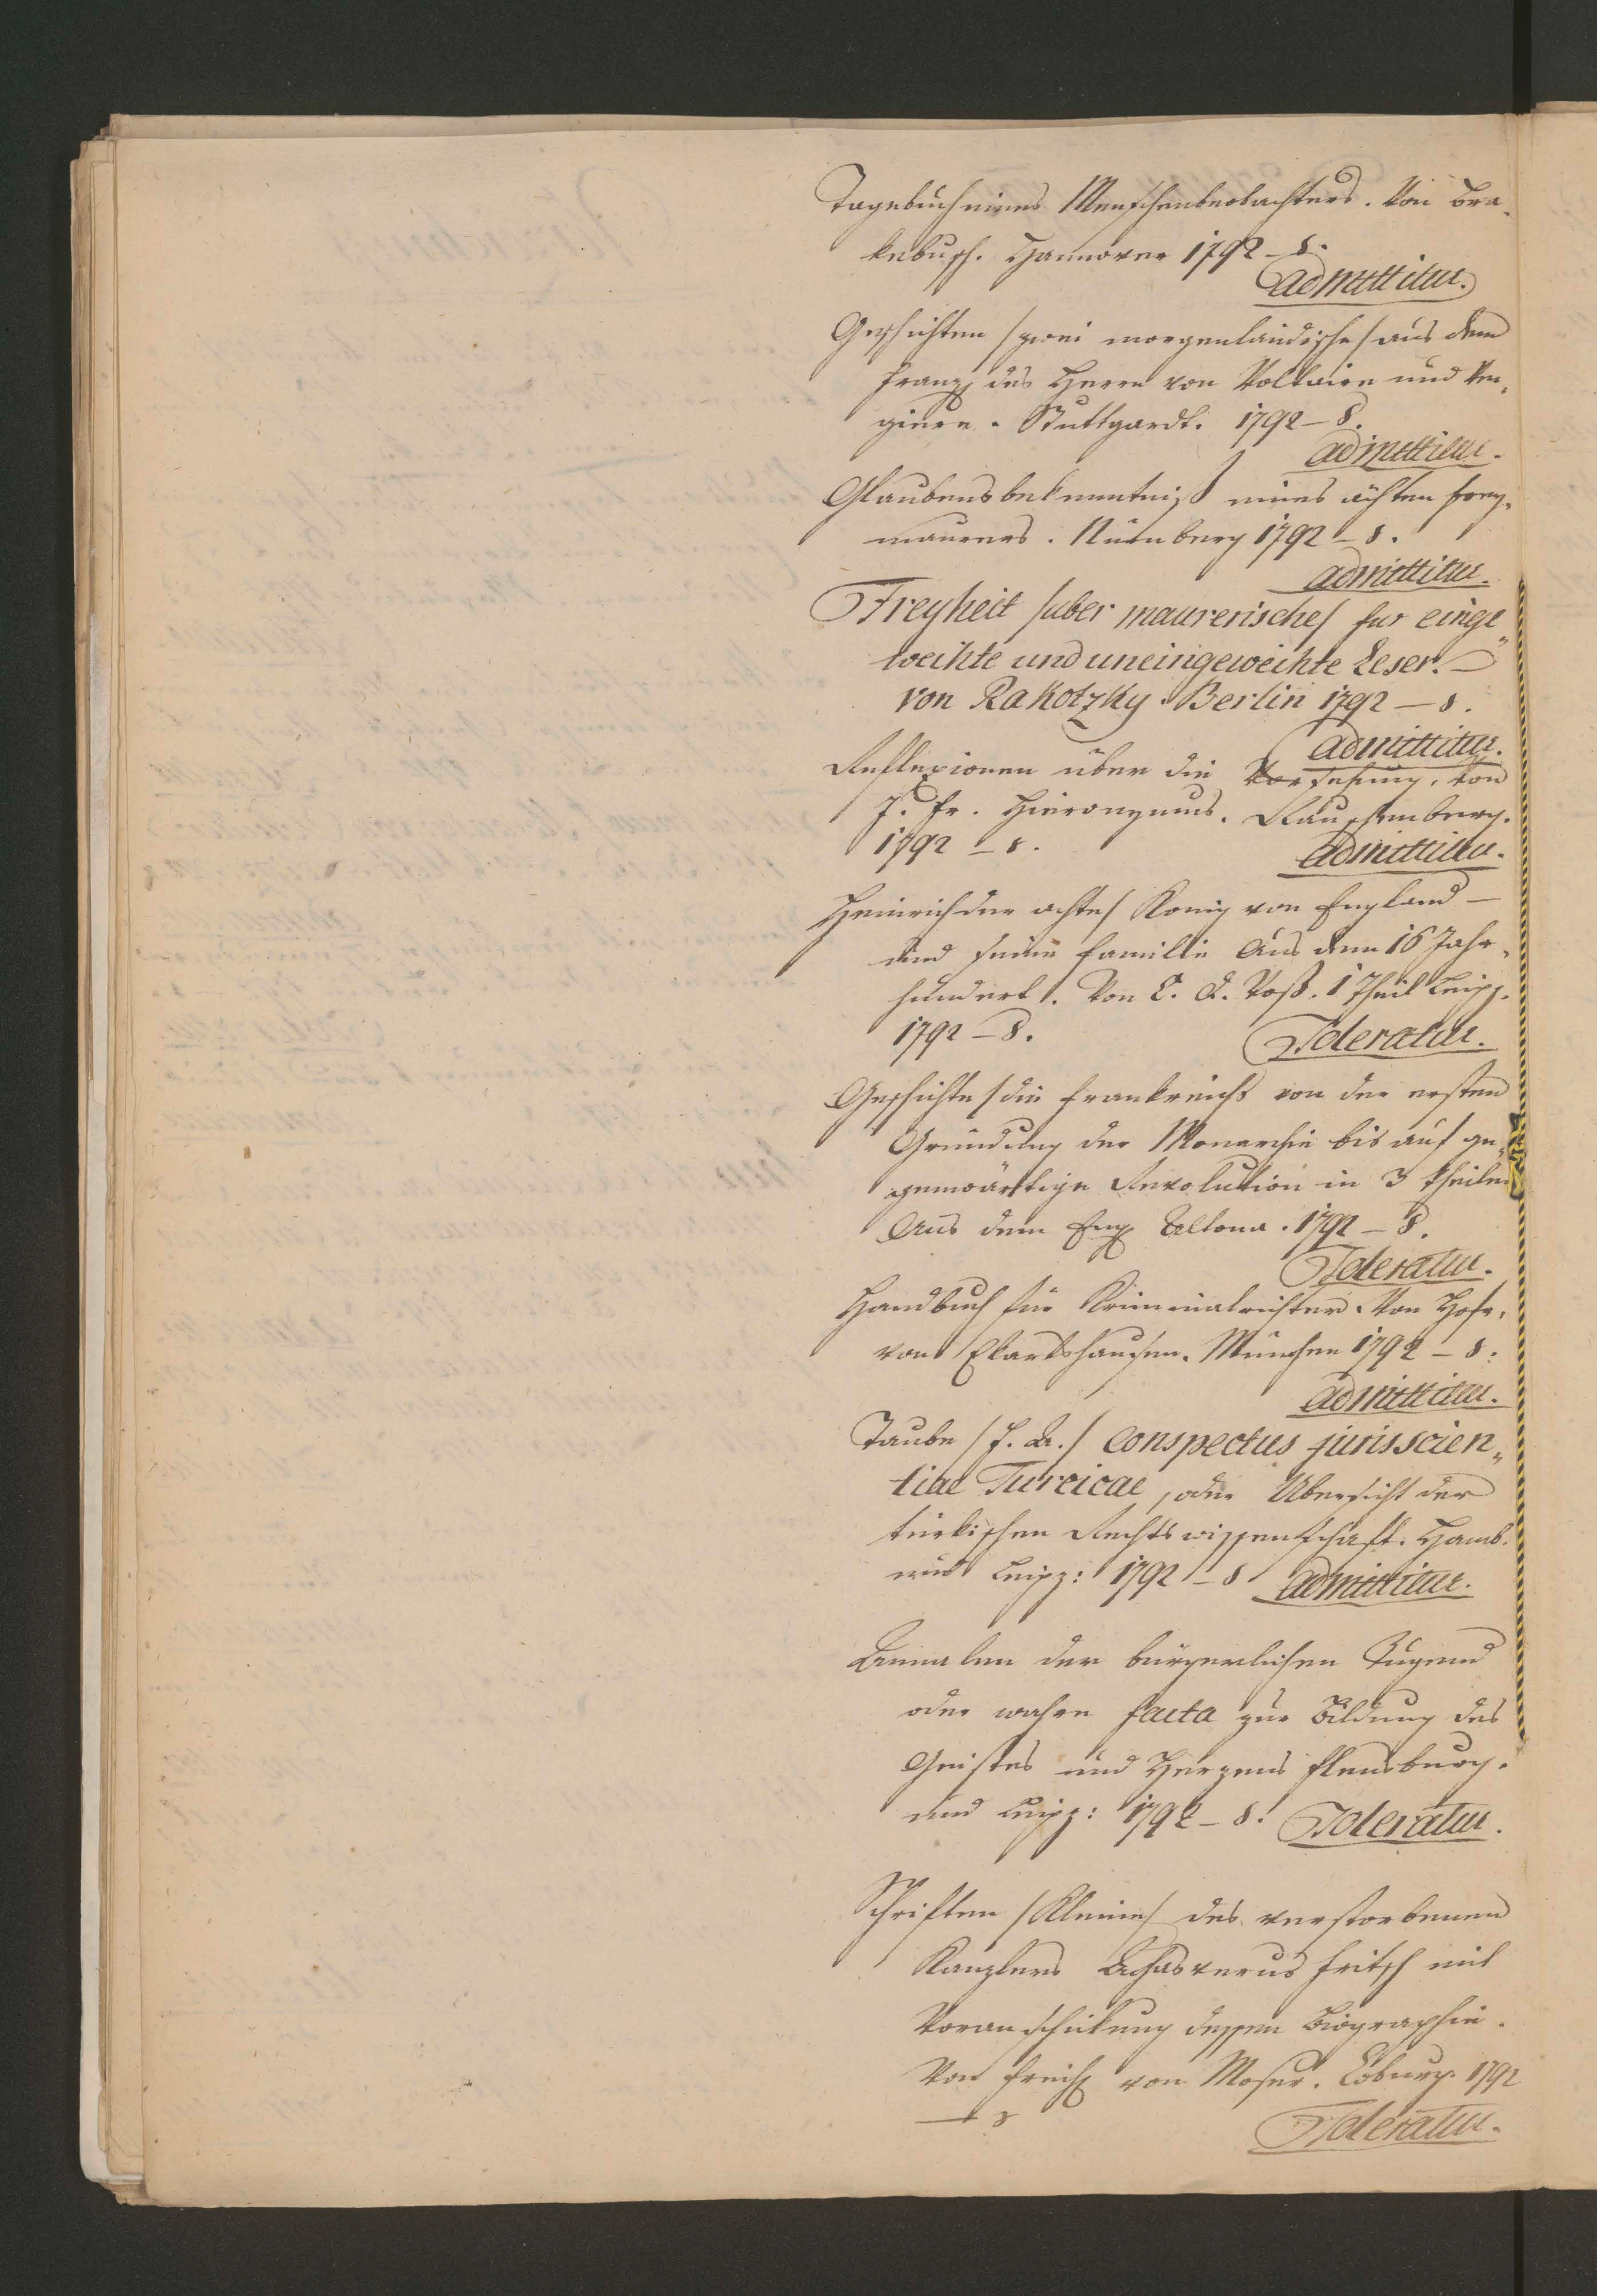 Tagebuch eines Menschenbeobachters. Von Bra„
kebusch. Hannover 1792 – 8.
admittitur.
Geschichten /zwei morgenländische/ aus dem
Franz des Herrn von Voltaire und
Stuttgardt. 1792 – 8.
admittitur.
Glaubensbekenntniß eines ächten Frey„
maurers. Nürnberg 1792 – 8.
admittitur.
Freyheit /uber maurerische/ fur einge„
weihte und uneingeweihte Leser. –
von Rakotzky. Berlin 1792 – 8.
admittitur.
Reflexionen über die Vorsehung, von
J. Fr. Hieronymus. Rauschenberg.
1792 – 8.
admittitur.
Heinrich der achte/ König von England –
und seine Familie Aus dem 16 Jahr„
hundert. Von C. D. Voß. 1 Theil Leipz.
1792 – 8.
Toleratur.
Geschichte /die Frankreichs von der ersten
Gründung der Monarchie bis auf ge„
genwärtige Revolution in 3 Theilen
Aus dem Eng Altona. 1792 – 8.
Toleratur.
Handbuch für Kriminalrichter. Von Hofr.
von Ekartshausen. München 1792 – 8.
admittitur.
Taube /F. A./ Conspectus jurisscien„
tiae Turcicae, oder Übersicht der
türkischen Rechtswissenschaft. Hamb.
und Leipz: 1792 – 8 admittitur.
Annalen der bürgerlichen Tugend
oder wahre facta zur Bildung des
Geistes und Herzens Flensburg.
und Leipz: 1792 – 8. Toleratur.
Schriften /Kleine/ des verstorbenen
Kanzlers Ahasverus Fritsch mit
Voranschickung dessen Biographie.
Von Freih von Moser. Coburg 1792
– 8
Toleratur.